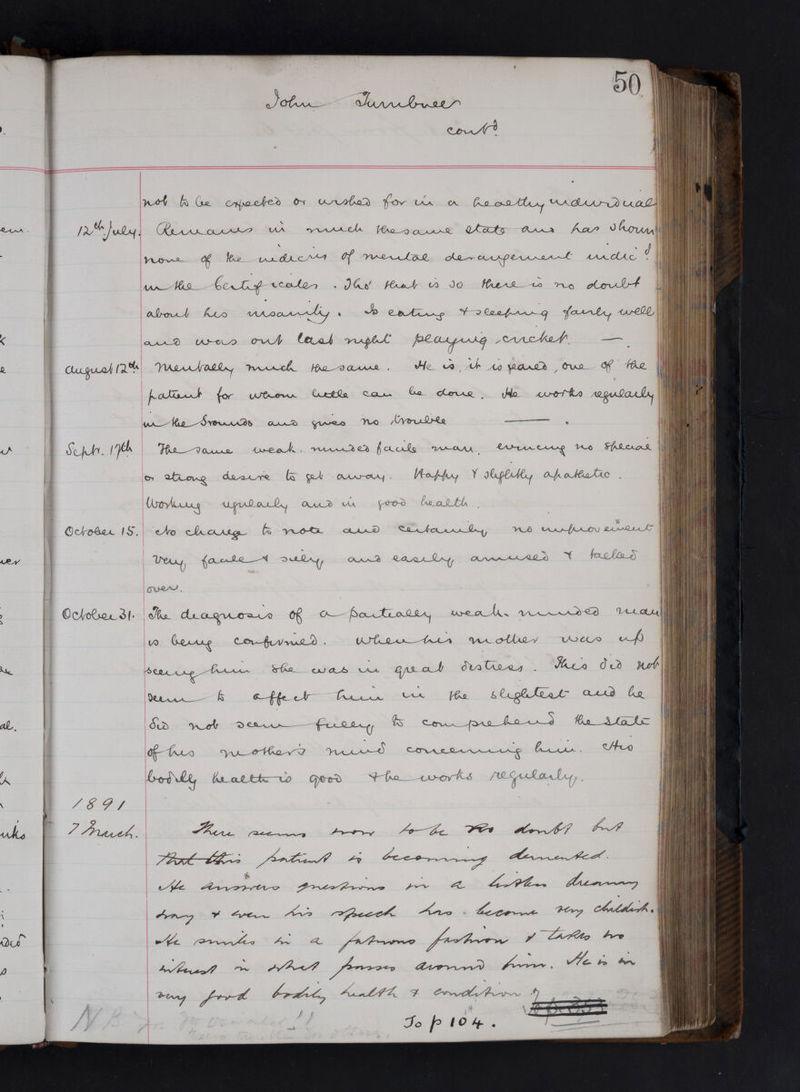 50
John Turnbull
contd
not to be expected or wished for in a healthy individual
12th July. Remains in much the same state and has shown
none of the indicia of mental derangement indicd
in the Certificates. Tho' that is so there is no doubt
about his insanity. Is eating & sleeping fairly well
and was out last night playing cricket. —
August 12th Mentally much the same. He is, it is feared, one of the
patient for whom little can be done. He works regularly
in the Grounds and gives no trouble — .
Septr. 17th The same weak-minded facile man, evincing no special
or strong desire to get away. Happy & slightly apathetic.
Working regularly and in good health.
October 15. No change to note and certainly no improvement
Very facile & silly and easily amused & talked
over.
October 31. The diagnosis of a partially weak-minded man
is being confirmed. When his mother was up
seeing him she was in great distress. This did not
seem to affect him in the slightest and he
did not seem fully to comprehend the state
of his mother's mind concerning him. His
bodily health is good & he works regularly.
1891
7 March. There seems now to be no doubt but
that this patient is becoming demented.
He answers questions in a listless dreamy
way & even his speech has become very childish.
He smiles in a fatuous fashion & takes no
interest in what passes around him. He is in
very good bodily health & condition
NB
To p 104.